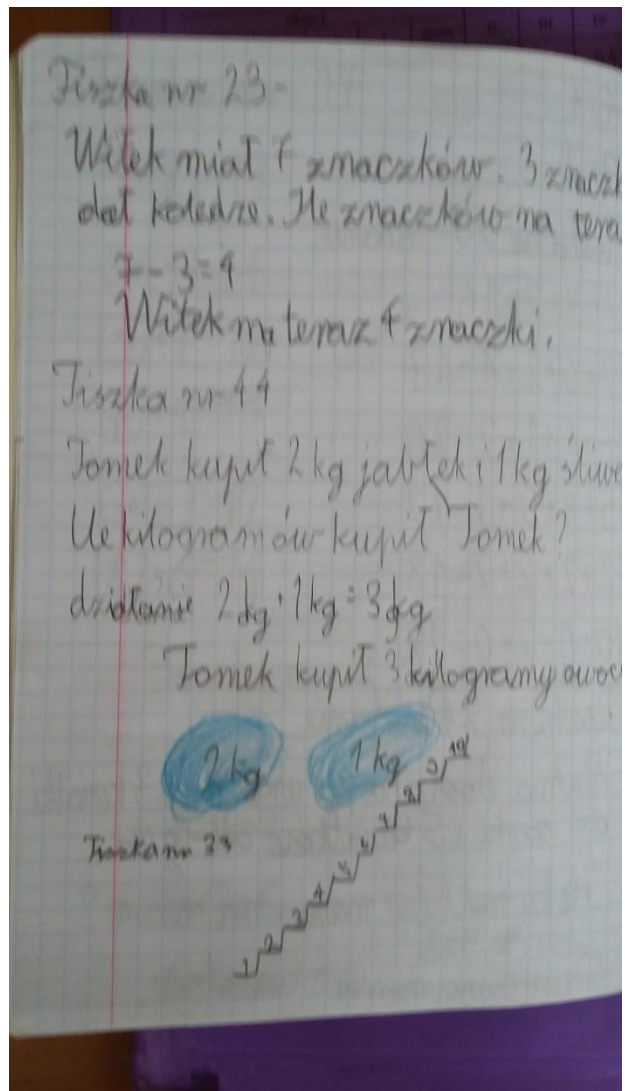 Fiszka nr 23
Witek miał 7 znaczków. 3 znaczk
dał koledze. Ile znaczków ma tera
7-3=4
Witek ma teraz 4 znaczki.
Fiszka nr 44
Tomek kupił 2 kg jabłek i 1kg śliwe
Ile kilogramów kupił Tomek?
działanie 2kg+1kg=3kg
Tomek kupił 3 kilogramy owoc
2kg 1kg
Fiszka nr 39
1 2 3 4 5 6 7 8 9 10